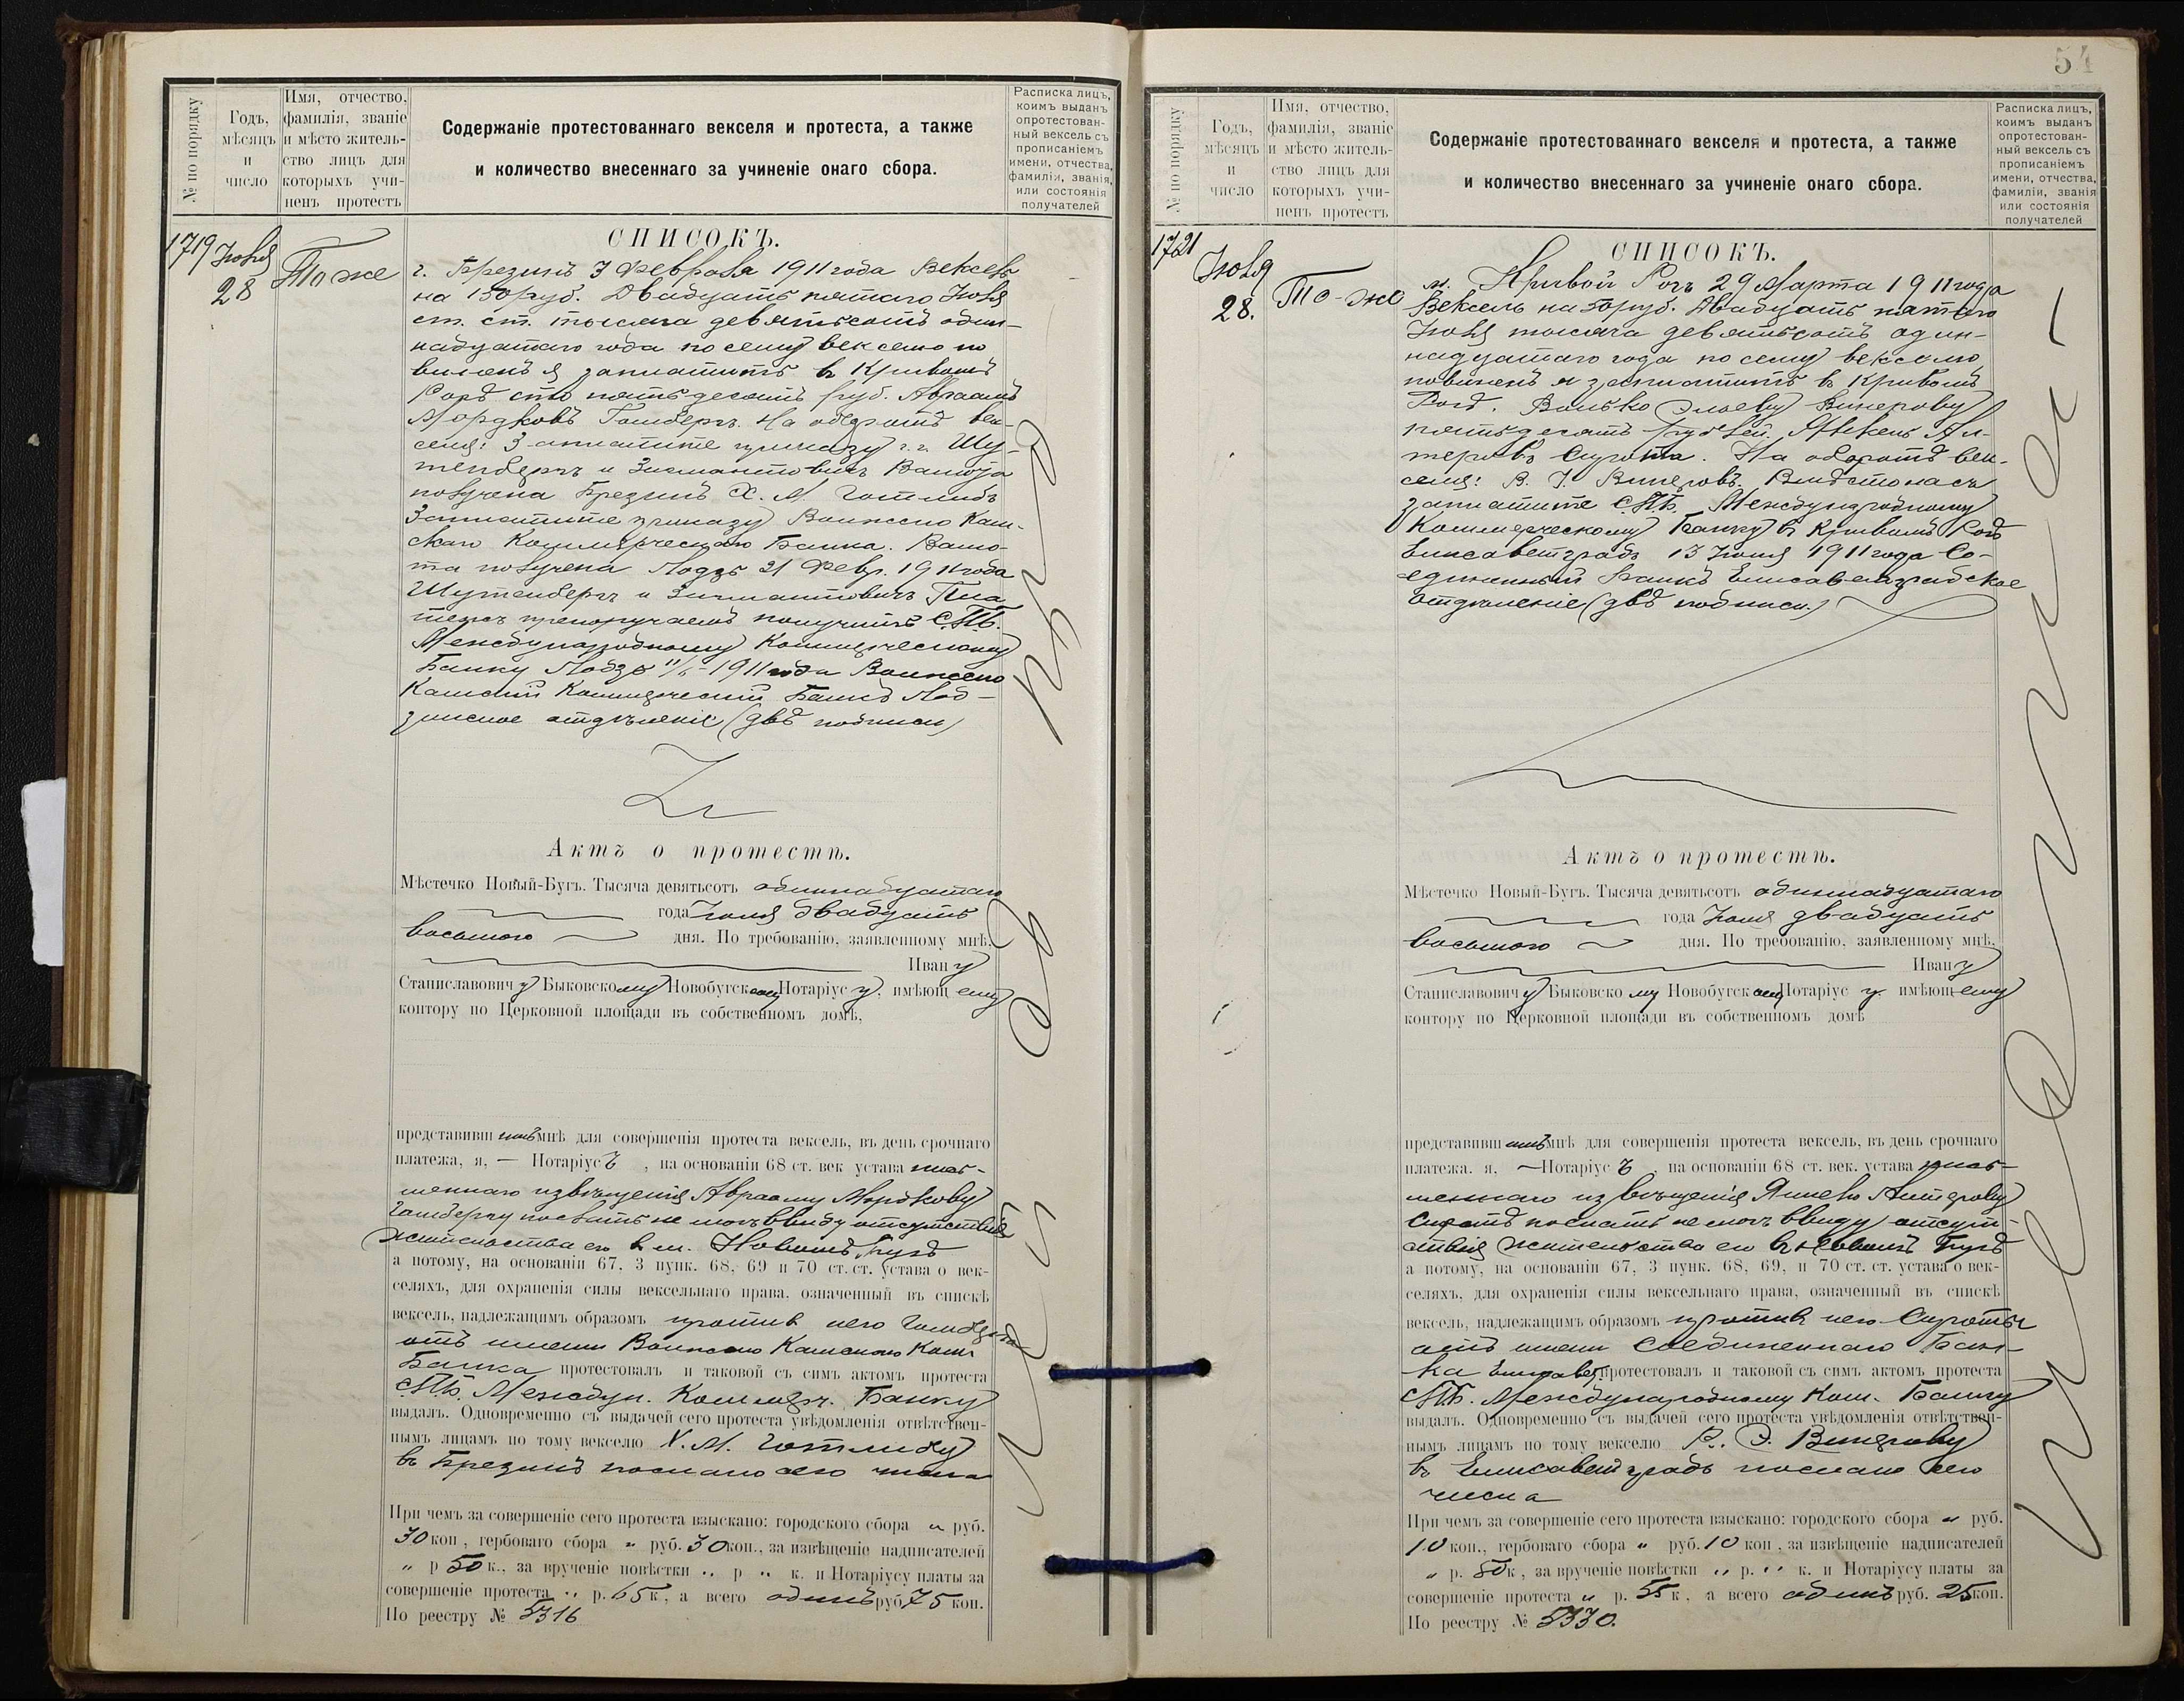 № по порядку
Годъ,
мѣсяцъ
и
число
Имя, отчество,
фамилія, званіе
и мѣсто житель-
ство лицъ для
которыхъ учи-
ненъ протестъ
Содержаніе протестованнаго векселя и протеста, а также
и количество внесеннаго за учиненіе онаго сбора.
Расписка лицъ,
коимъ выданъ
опротестован-
ный вексель съ
прописаніемъ
имени, отчества,
фамиліи, званія,
или состоянія
получателей
1719
Іюля
28
То же
СПИСОКЪ.
г. Брезинъ 3 Февраля 1911 года Вексель
на 150 руб. Двадцать пятаго Іюля
ст. ст. тысяча девятьсотъ один-
надцатаго года по сему векселю по
виненъ я заплатить въ Кривомъ
Рогѣ сто пятьдесятъ руб. Авраамъ
Мордковъ Гольбергъ. На оборотѣ век-
селя: Заплатите приказу г.г. Шу-
тенбергъ и Зигмантовичъ Валюта
получена Брезинъ Х. М. Готлибъ
Заплатите приказу Волжско Кам-
скаго Коммерческаго Банка. Валю-
та получена Лодзь 21 Февр. 1911 года
Шутенбергъ и Зигмантовичъ
препоручаемъ получить С.П.Б.
Международному Коммерческому
Банку Лодзь 1911 года Волжско
Камскій Коммерческій Банкъ Лод-
зинское отдѣленіе (двѣ подписи)
Актъ о протестѣ.
Мѣстечко Новый-Бугъ. Тысяча девятьсотъ одиннадцатаго
года Іюля двадцать
восьмого дня. По требованію, заявленному мнѣ,
Ивану
Станиславовичу Быковскому Новобугскому Нотаріусу, имѣющему
контору по Церковной площади въ собственномъ домѣ,
представившимъ мнѣ для совершенія протеста вексель, въ день срочнаго
платежа, я, — Нотаріусъ, на основаніи 68 ст. век устава пись-
меннаго извѣщенія Авраму Мордкову
Гольбергу послать не могъ ввиду отсутствія
жительства его въ м. Новомъ Бугѣ
а потому, на основаніи 67, 3 пунк. 68, 69 и 70 ст. ст. устава о век-
селяхъ, для охраненія силы вексельнаго права, означенный въ спискѣ
вексель, надлежащимъ образомъ противъ него Гольберга
отъ имени Волжско Камскаго Ком.
Банка протестовалъ и таковой съ симъ актомъ протеста
С.П.Б. Междун. Коммерч. Банку
выдалъ. Одновременно съ выдачей сего протеста увѣдомленія отвѣтствен-
нымъ лицамъ по тому векселю Х. М. Готлибу
въ Брезинѣ послано сего числа
При чемъ за совершеніе сего протеста взыскано: городского сбора „ руб.
30 коп, гербоваго сбора „ руб. 30 коп., за извѣщеніе надписателей
„ р 50 к., за врученіе повѣстки „ р „ к. и Нотаріусу платы за
совершеніе протеста „ р. 65 к, а всего одинъ руб 75 коп.
По реестру № 5316
54
№ по порядку
Годъ,
мѣсяцъ
и
число
Имя, отчество,
фамилія, званіе
и мѣсто житель-
ство лицъ для
которыхъ учи-
ненъ протестъ
Содержаніе протестованнаго векселя и протеста, а также
и количество внесеннаго за учиненіе онаго сбора.
Расписка лицъ,
коимъ выданъ
опротестован-
ный вексель съ
прописаніемъ
имени, отчества,
фамиліи, званія
или состоянія
получателей
1721
Іюля
28.
То-же
СПИСОКЪ.
м. Кривой Рогъ 29 Марта 1911 года
Вексель на 50 руб. Двадцать пятаго
Іюля тысяча девятьсотъ один-
надцатаго года по сему векселю
повиненъ я заплатить въ Кривомъ
Рогѣ. Волько Элеву Винерову
пятьдесятъ рублей. Янкель Ал-
теровъ Сирота. На оборотѣ век-
селя: В. Э. Винеровъ. Вмѣсто насъ
заплатите С.П.Б. Международному
Коммерческому Банку въ Кривомъ Рогѣ
Елисаветградъ 13 Іюля 1911 года Со-
единенный Банкъ Елисаветградское
отдѣленіе (двѣ подписи.)
Актъ о протестѣ.
Мѣстечко Новый-Бугъ. Тысяча девятьсотъ одиннадцатаго
года Іюля двадцать
восьмого дня. По требованію, заявленному мнѣ,
Ивану
Станиславовичу Быковскому Новобугскому Нотаріусу имѣющему
контору по Церковной площади въ собственномъ домѣ
представившимъ мнѣ для совершенія протеста вексель, въ день срочнаго
платежа. я, —Нотаріусъ, на основаніи 68 ст. век. устава пись-
меннаго извѣщенія Янкелю Алтерову
Сиротѣ послать не могъ ввиду отсут-
ствія жительства его въ Новомъ Бугѣ
а потому, на основаніи 67, 3 пунк. 68, 69, и 70 ст. ст. устава о век-
селяхъ, для охраненія силы вексельнаго права, означенный въ спискѣ
вексель, надлежащимъ образомъ противъ него Сироты
отъ имени Соединеннаго Бан-
ка Елисавет. протестовалъ и таковой съ симъ актомъ протеста
С.П.Б. Международному Ком. Банку
выдалъ. Одновременно съ выдачей сего протеста увѣдомленія отвѣтствен-
нымъ лицамъ по тому векселю В. Э. Винерову
въ Елисаветградъ послано сего
числа
При чемъ за совершеніе сего протеста взыскано: городского сбора „ руб.
10 коп., гербоваго сбора „ руб. 10 коп, за извѣщеніе надписателей
„ р. 50 к, за врученіе повѣстки „ р. „ к. и Нотаріусу платы за
совершеніе протеста „ р. 55 к, а всего одинъ руб. 25 коп.
По реестру № 5330.